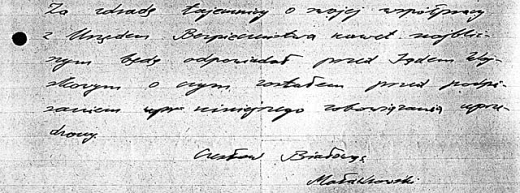 Za zdradę tajemnicy o mojej współpracy
z Urzędem Bezpieczeństwa nawet najbliż-
szym będę odpowiadał przed Sądem Woj-
skowym o czym zostałem przed podpi-
saniem niniejszego zobowiązania uprze-
dzony.
Czesław Białowąs